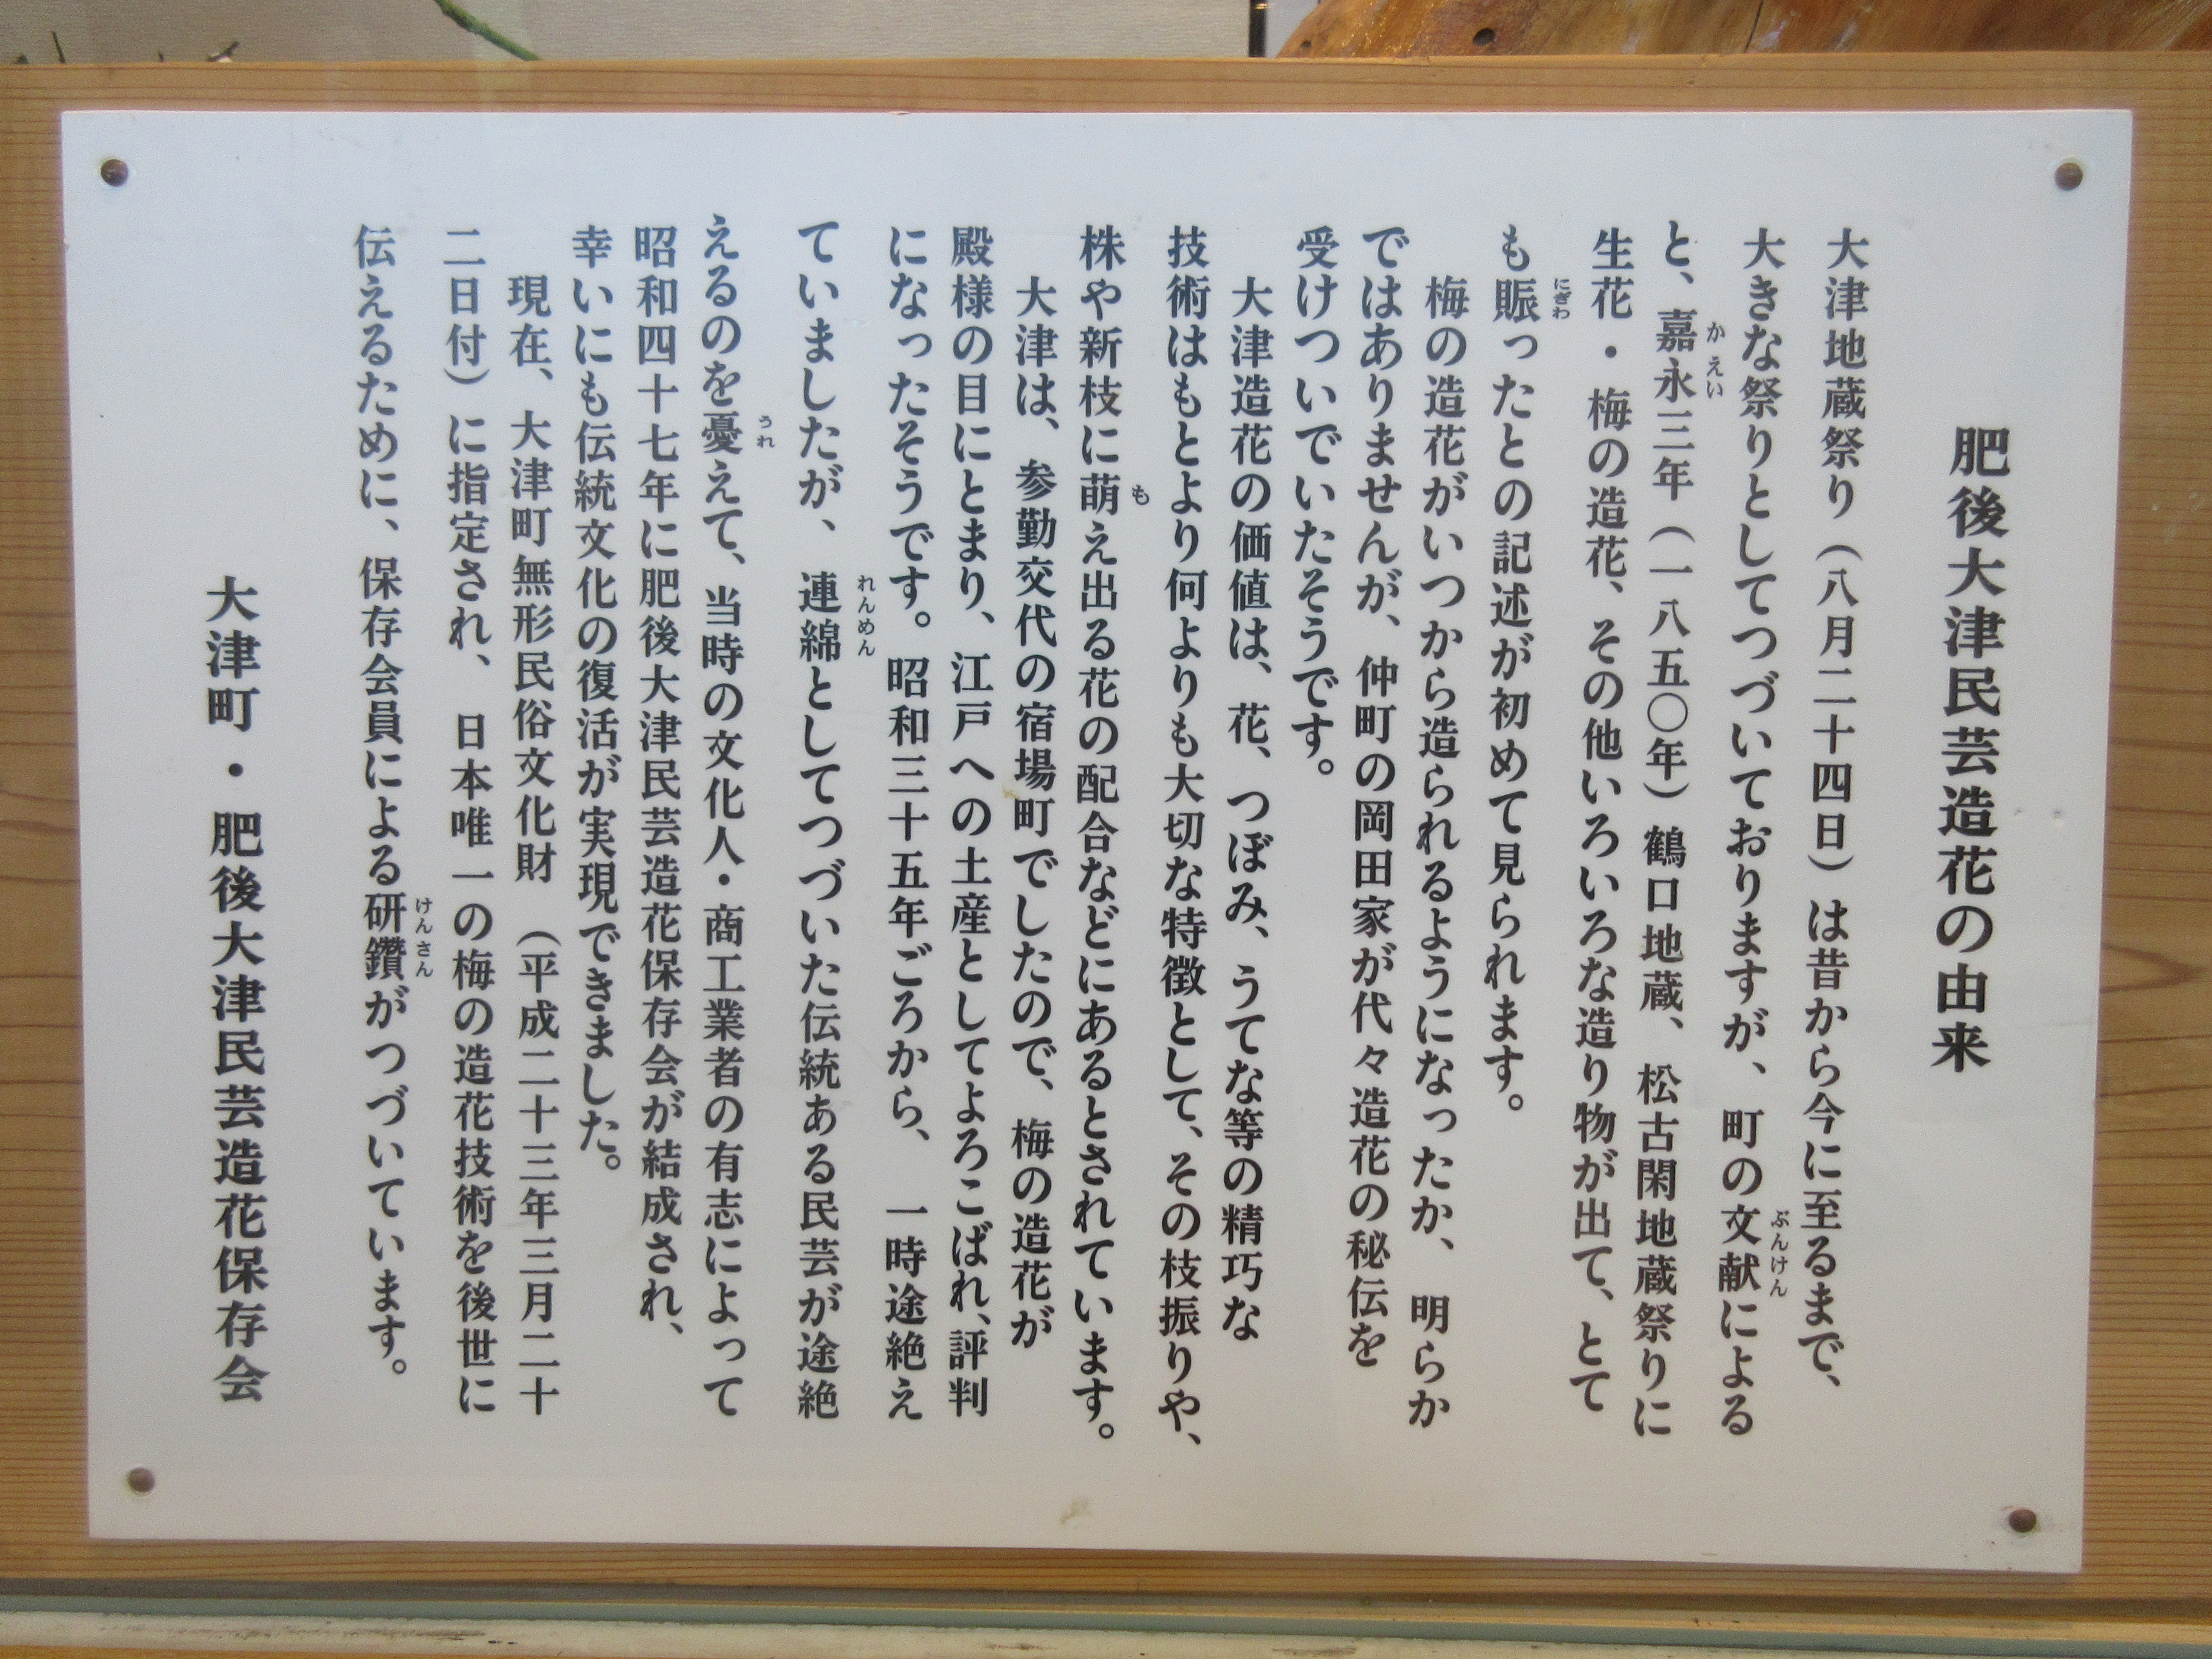 肥後大津民芸造花の由来
大津地蔵祭り（八月二十四日）は昔から今に至るまで、
大きな祭りとしてつづいておりますが、町の文献による
と、嘉永三年（一八五〇年）鶴口地蔵、松古閑地蔵祭りに
生花・梅の造花、その他いろいろな造り物が出て、とて
も賑ったとの記述が初めて見られます。
梅の造花がいつから造られるようになったか、明らか
ではありませんが、仲町の岡田家が代々造花の秘伝を
受けついでいたそうです。
大津造花の価値は、花、つぼみ、うてな等の精巧な
技術はもとより何よりも大切な特徴として、その枝振りや、
株や新枝に萌え出る花の配合などにあるとされています。
大津は、参勤交代の宿場町でしたので、梅の造花が
殿様の目にとまり、江戸への土産としてよろこばれ、評判
になったそうです。昭和三十五年ごろから、一時途絶え
ていましたが、連綿としてつづいた伝統ある民芸が途絶
えるのを憂えて、当時の文化人・商工業者の有志によって
昭和四十七年に肥後大津民芸造花保存会が結成され、
幸いにも伝統文化の復活が実現できました。
現在、大津町無形民俗文化財（平成二十三年三月二十
二日付）に指定され、日本唯一の梅の造花技術を後世に
伝えるために、保存会員による研鑽がつづいています。
大津町・肥後大津民芸造花保存会